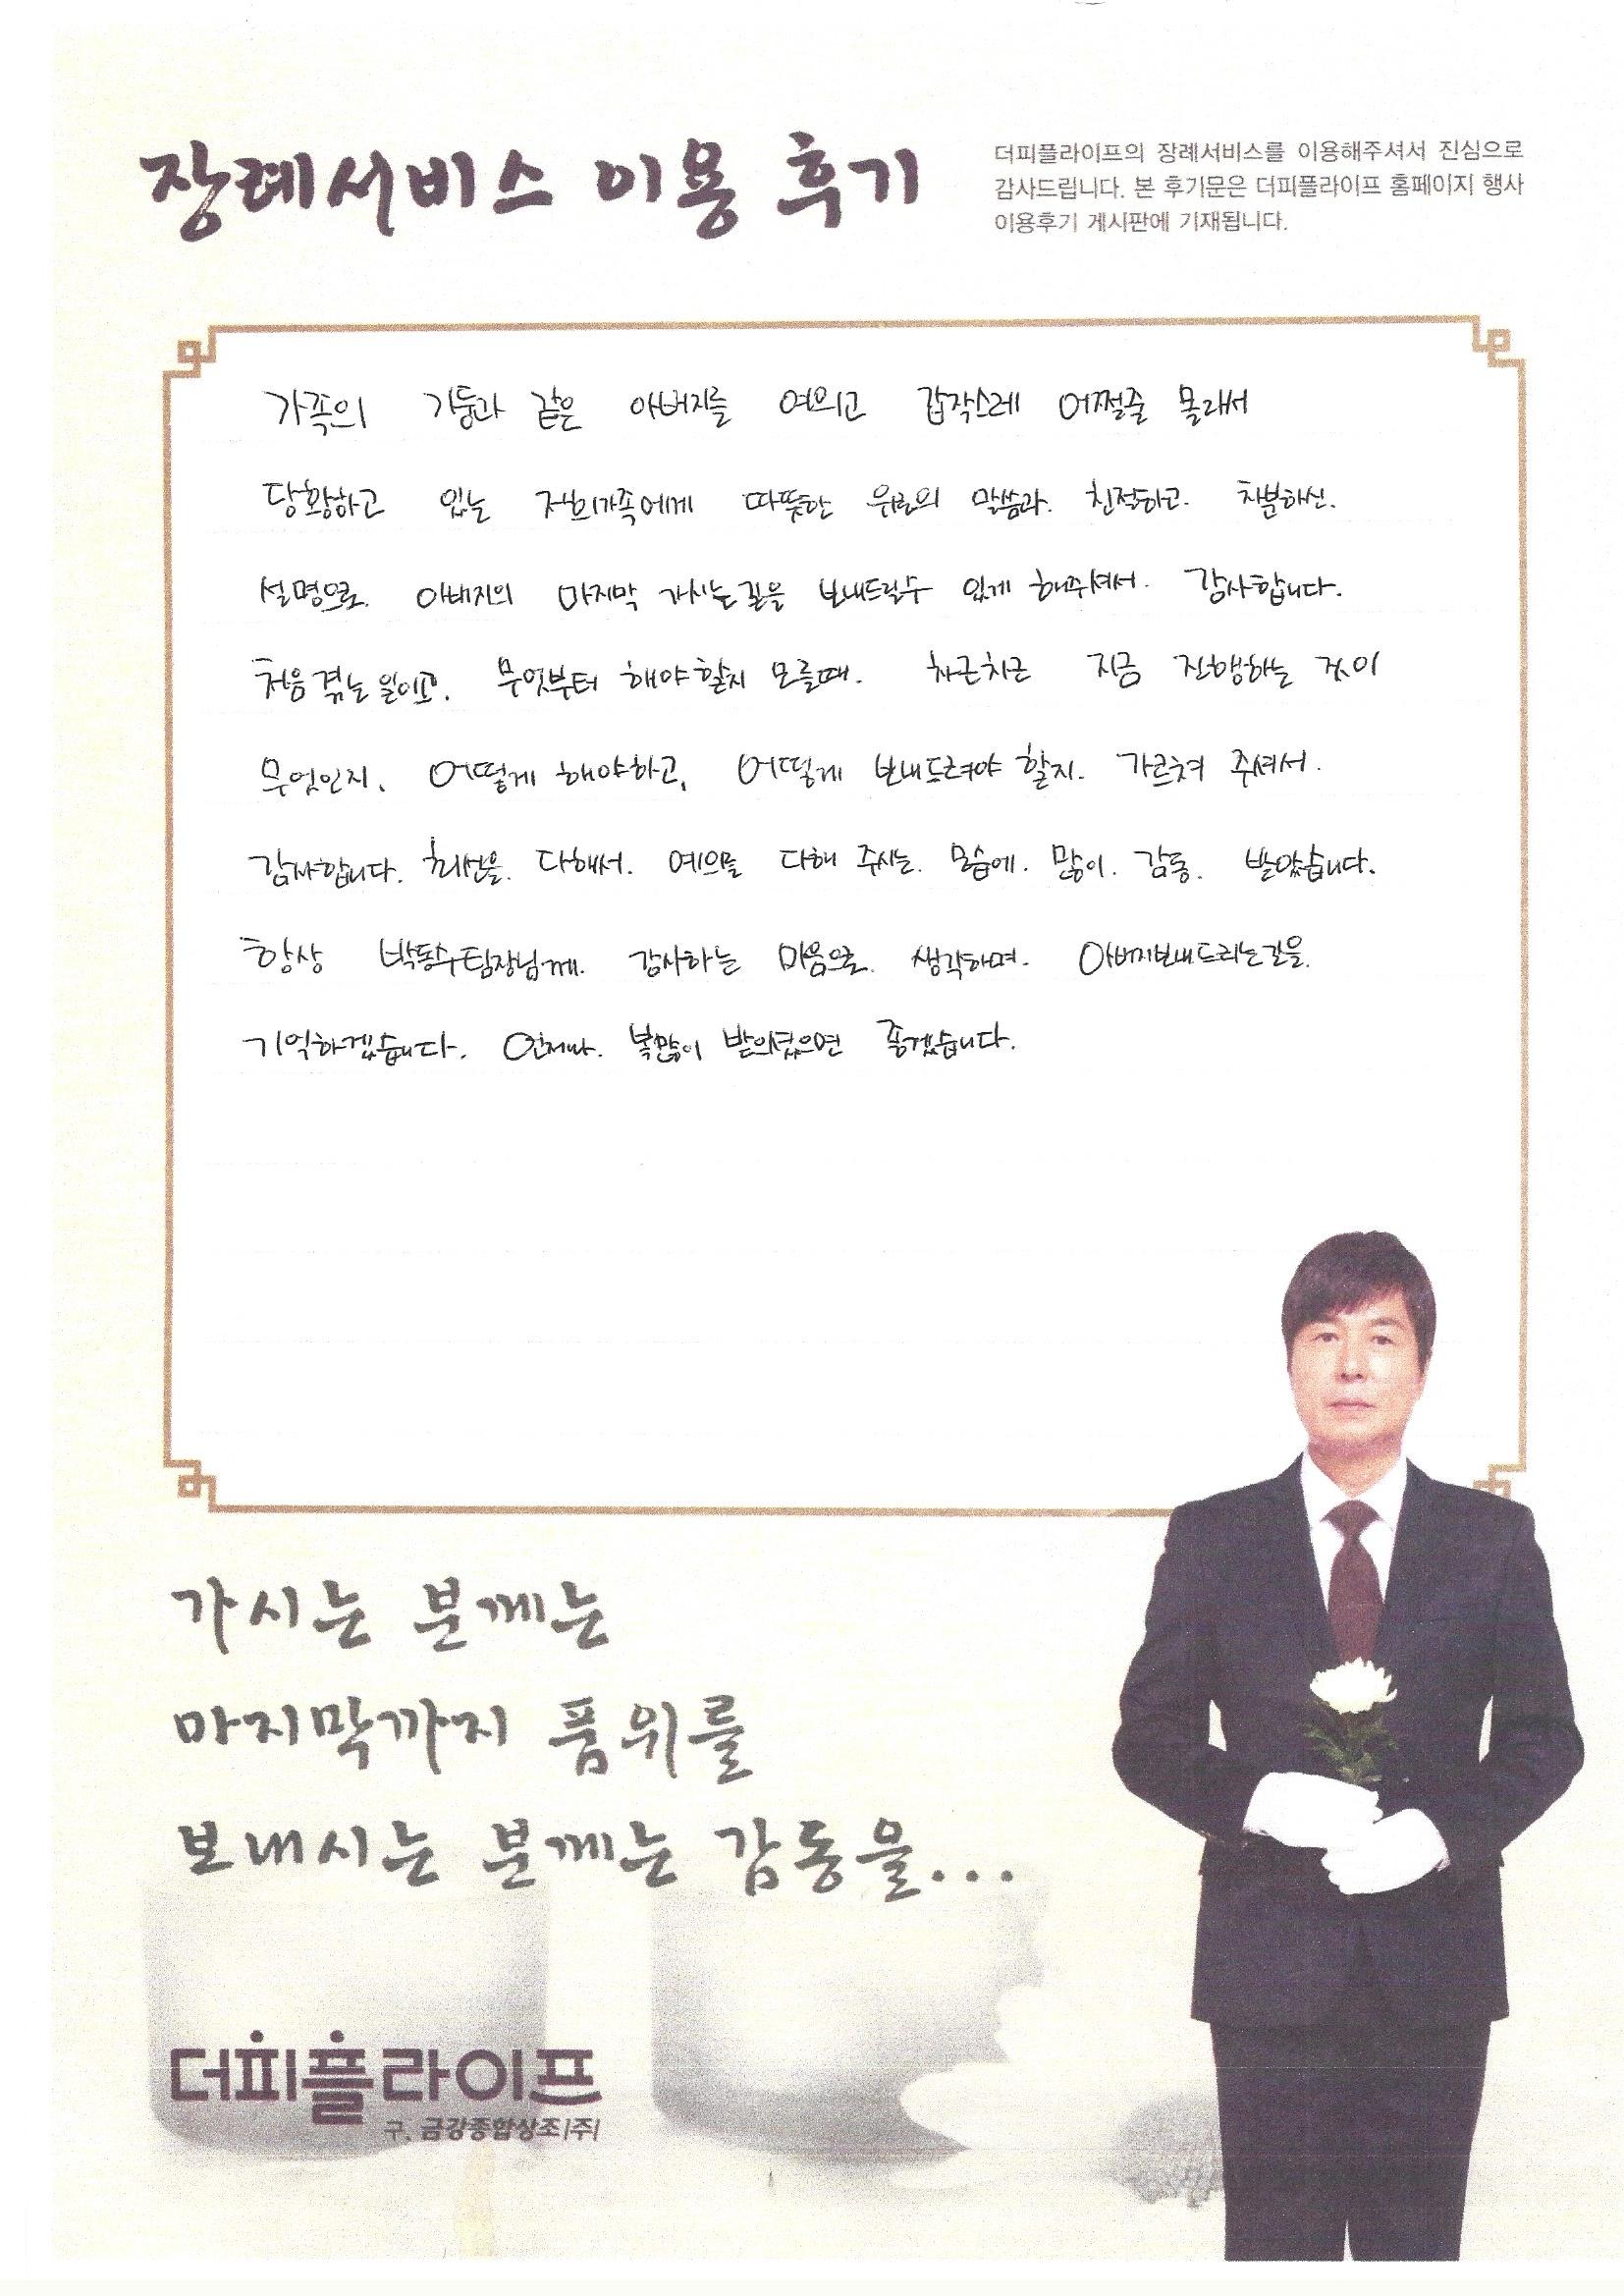 장례서비스 이용 후기
더피플라이프의 장례서비스를 이용해주셔서 진심으로
감사드립니다. 본 후기문은 더피플라이프 홈페이지 행사
이용후기 게시판에 기재됩니다.
가족의 기둥과 같은 아버지를 여의고 갑작스레 어쩔줄 몰래서
당황하고 있는 저희가족에게 따뜻한 위로의 말씀과. 친절하고. 차분하신.
설명으로. 아버지의 마지막 가시는길을 보내드릴수 있게 해주셔서. 감사합니다.
처음 겪는 일이고. 무엇부터 해야할지 모를때. 차근차근 지금 진행하는 것이
무엇인지. 어떻게 해야하고, 어떻게 보내드려야 할지. 가르쳐 주셔서.
감사합니다. 최선을. 다해서. 예의를 다해 주시는. 모습에. 많이. 감동. 받았습니다.
항상 박동수팀장님께. 감사하는 마음으로. 생각하며. 아버지보내드리는길을.
기억하겠습니다. 언제나. 복많이 받으셨으면 좋겠습니다.
가시는 분께는
마지막까지 품위를
보내시는 분께는 감동을...
더피플라이프
구. 금강종합상조(주)